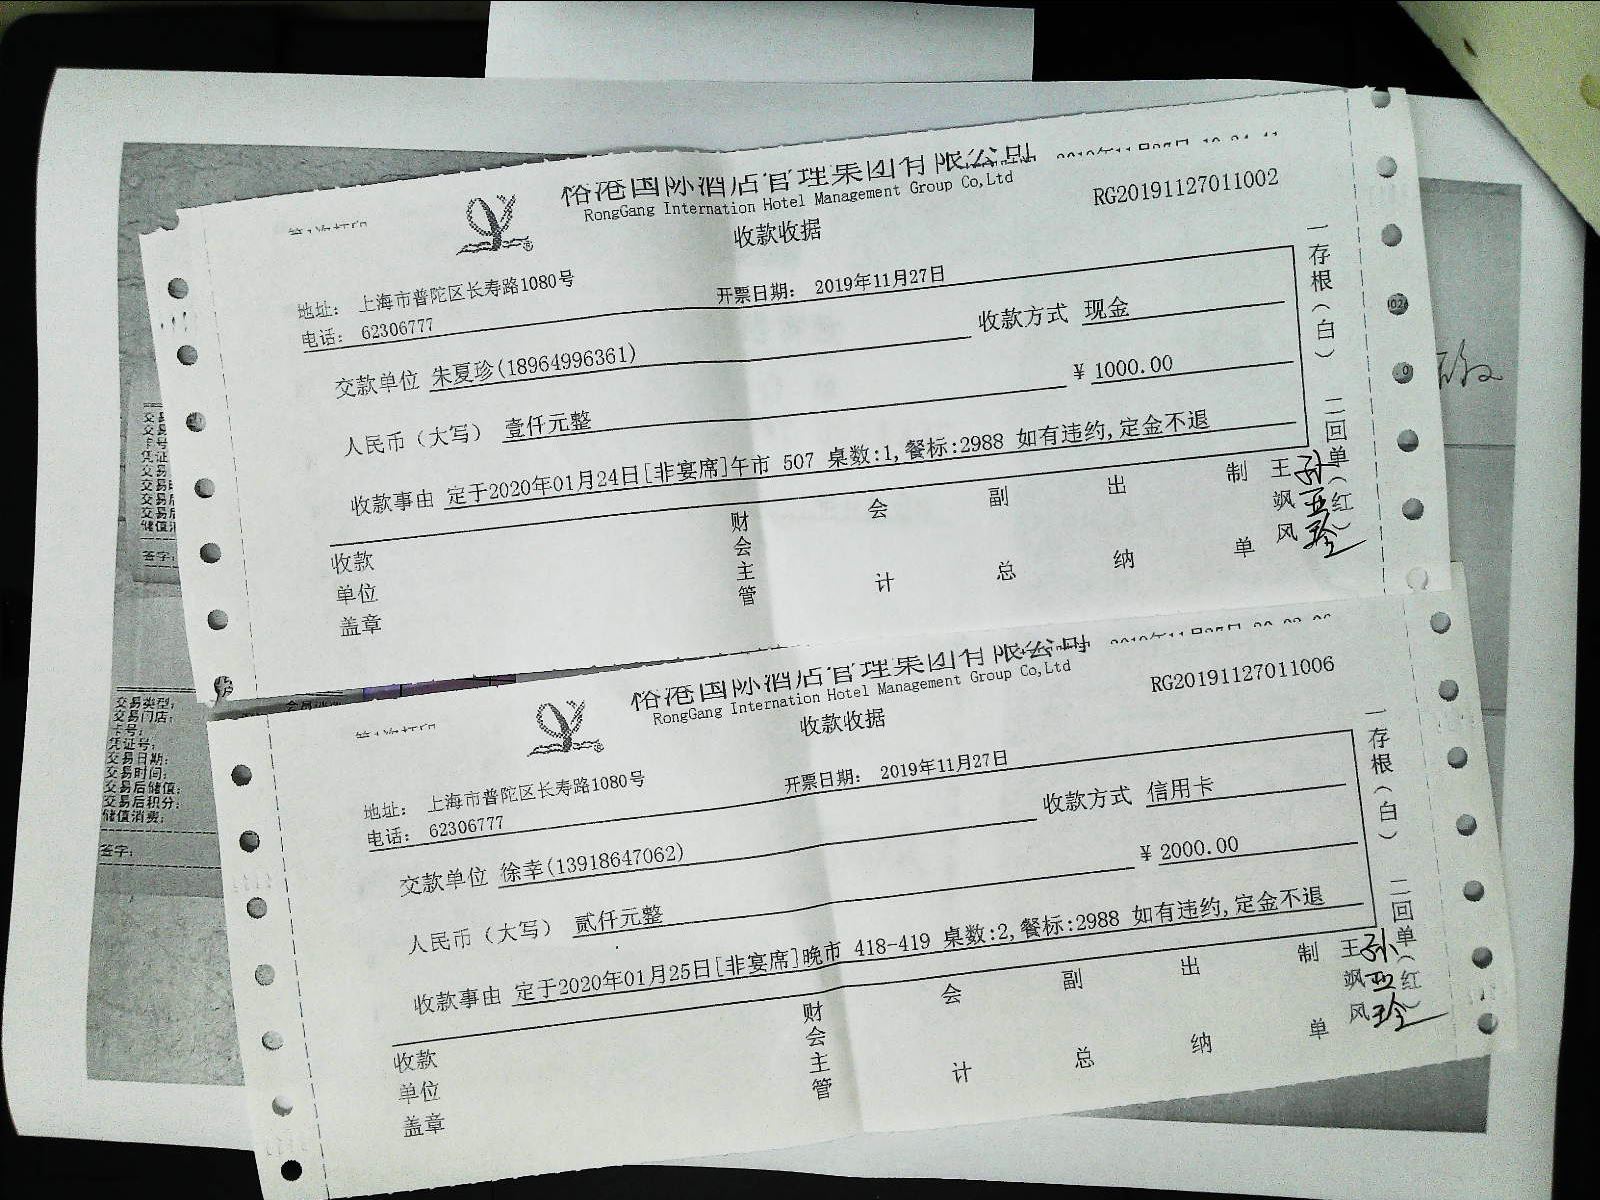 裕港国际酒店管理集团有限公司
RongGang Internation Hotel Management Group Co,Ltd
收款收据
RG20191127011002
地址： 上海市普陀区长寿路1080号
电话： 62306777
开票日期： 2019年11月27日
交款单位 朱夏珍(18964996361)
收款方式 现金
人民币（大写） 壹仟元整
¥ 1000.00
收款事由 定于2020年01月24日[非宴席]午市 507 桌数:1,餐标:2988 如有违约,定金不退
收款单位盖章
财会主管
会计
副总
出纳
制单
王飒风
孙亚珍
一存根（白） 二回单（红）
裕港国际酒店管理集团有限公司
RongGang Internation Hotel Management Group Co,Ltd
收款收据
RG20191127011006
地址： 上海市普陀区长寿路1080号
电话： 62306777
开票日期： 2019年11月27日
交款单位 徐幸(13918647062)
收款方式 信用卡
人民币（大写） 贰仟元整
¥ 2000.00
收款事由 定于2020年01月25日[非宴席]晚市 418-419 桌数:2,餐标:2988 如有违约,定金不退
收款单位盖章
财会主管
会计
副总
出纳
制单
王飒风
孙亚珍
一存根（白） 二回单（红）
交易类型：
交易门店：
卡号：
凭证号：
交易日期：
交易时间：
交易后储值：
交易后积分：
储值消费：
签字：